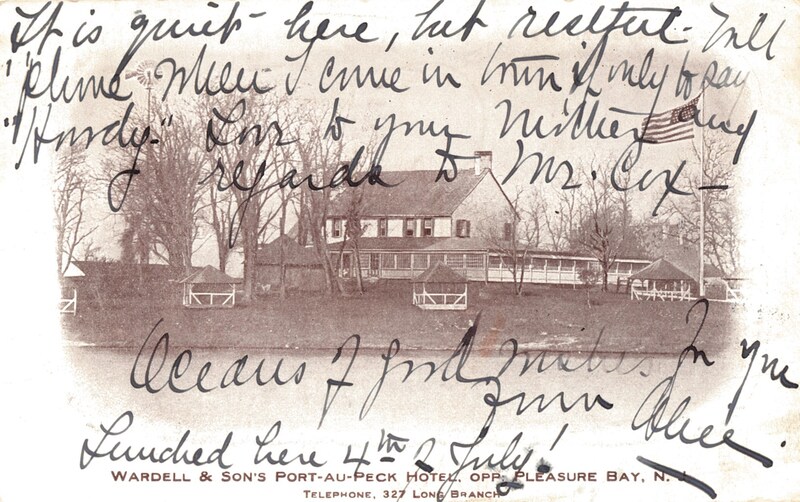 It is quiet here, but restful - Will
'phone when I come in town if only to say
"Howdy." Love to your Mother and
regards to Mr. Cox -
Oceans of good wishes for you
from Alice.
Lunched here 4th of July!
WARDELL & SON'S PORT-AU-PECK HOTEL, OPP. PLEASURE BAY, N. J.
TELEPHONE, 327 LONG BRANCH